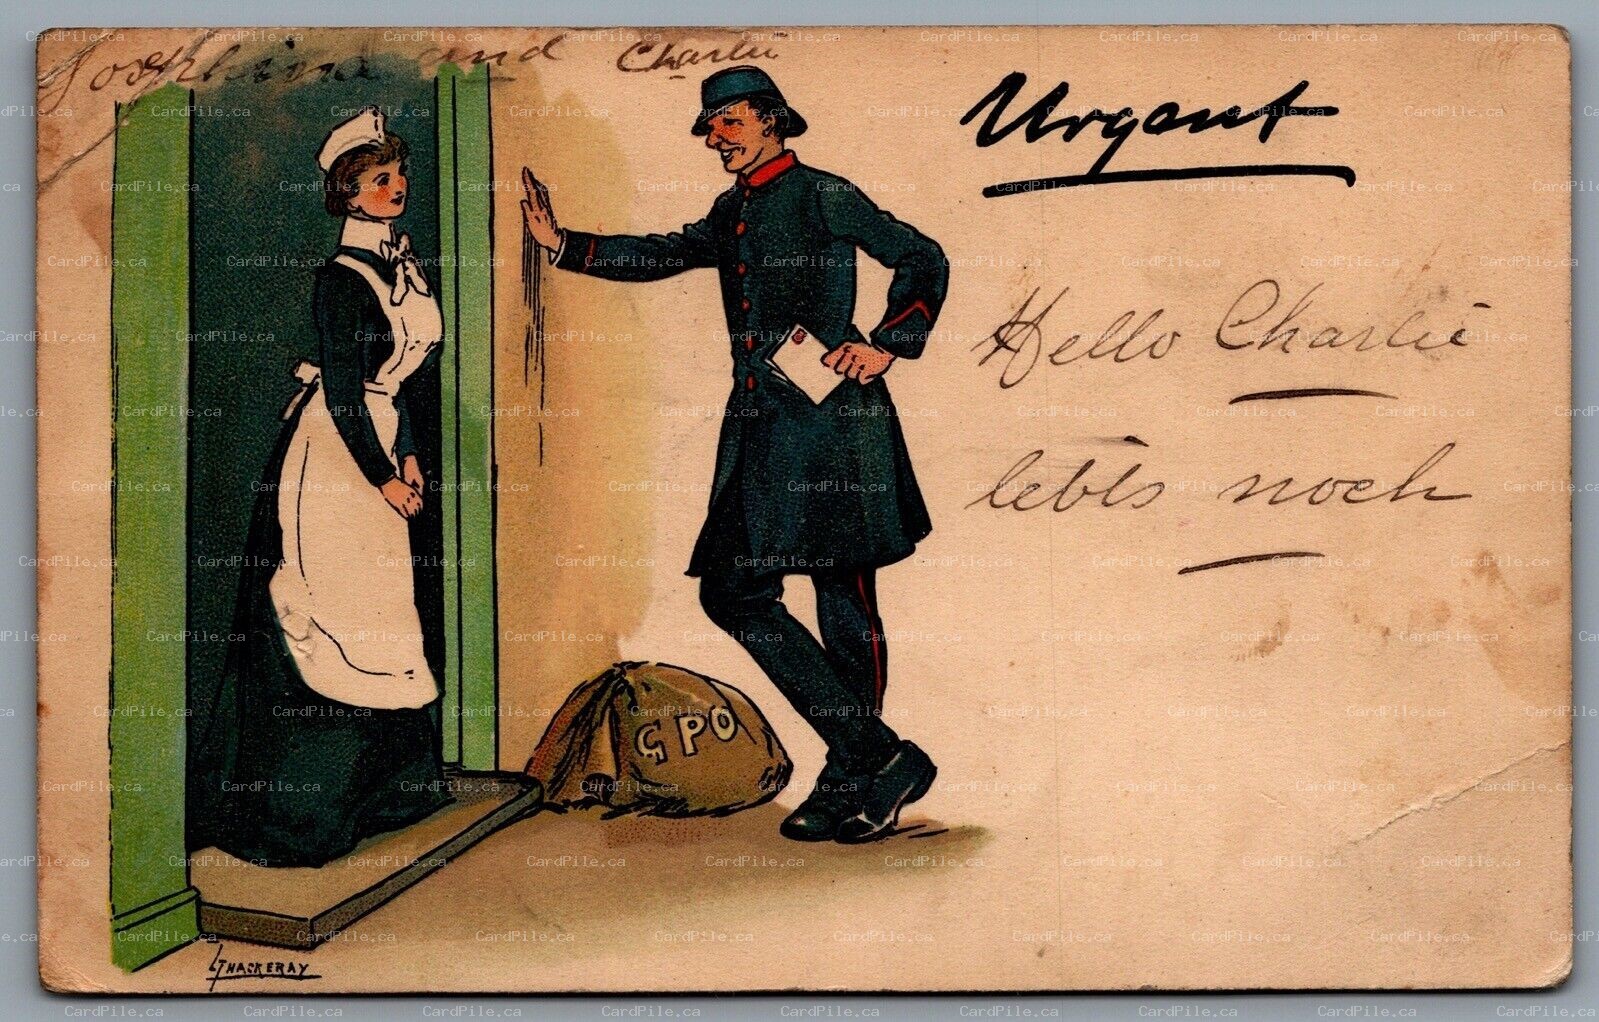 Josephine and Charlie
Urgant
Hello Charlie
lebts noch
GPO
L THACKERAY
CardPile.ca